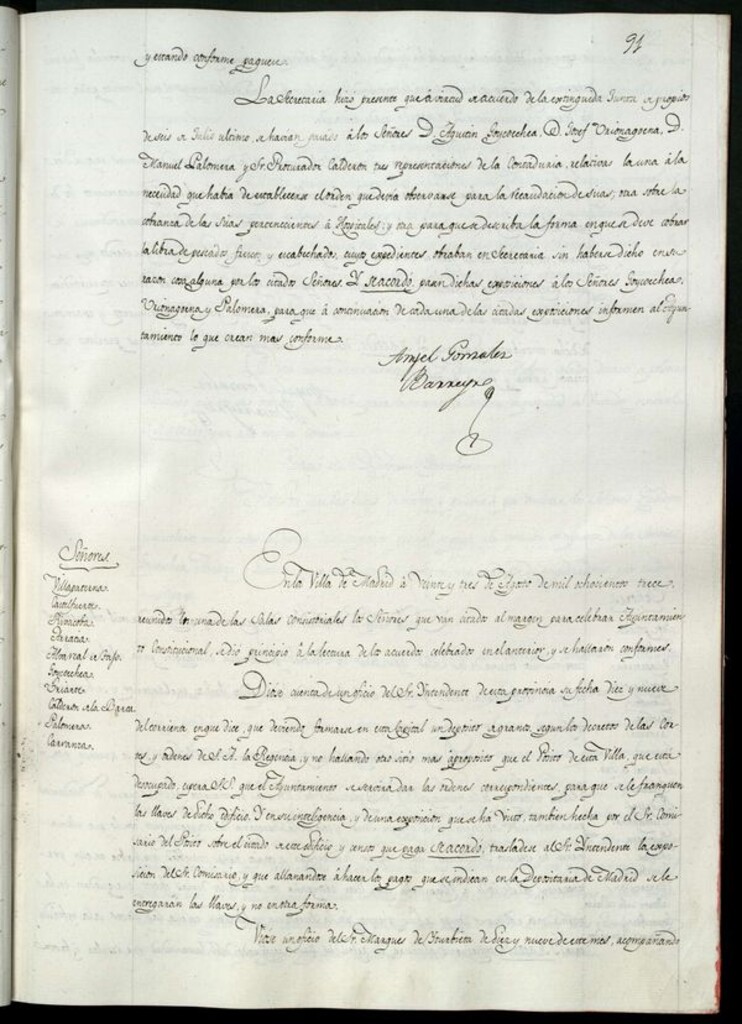 91
y estando conforme pague.
La Secretaria hizo presente que á virtud de acuerdo de la extinguida Junta de propios
de seis de Julio ultimo, se havian pasado á los Señores D. Agustin Goycoechea, D. Josef Urionagoena, D.
Manuel Palomera y Sr. Procurador Calderon tres representaciones de la Contaduria, relativas la una á la
necesidad que habia de establecerse el orden que devia observarse para la recaudacion de sisas, otra sobre la
cobranza de las sisas pertenecientes á Hospitales; y otra para que se describa la forma en que se deve cobrar
la libra de pescados frescos y escabechados, cuyos expedientes obraban en Secretaria sin haberse dicho en su
razon cosa alguna por los citados Señores. Y se acordó, pasen dichas exposiciones á los Señores Goycoechea,
Urionagoena y Palomera, para que á continuacion de cada una de las citadas exposiciones informen al Ayun-
tamiento lo que crean mas conforme.
Angel Gonzalez
Barreyro
Señores
Castilfuerte
Arratia
Goycoechea
Iriarte
Palomera
Carranza
En la Villa de Madrid á Veinte y tres de Agosto de mil ochocientos trece,
reunidos en una de las Salas consistoriales los Señores que van citados al margen para celebrar Ayuntamien-
to Constitucional, se dió principio á la lectura de los acuerdos celebrados en el anterior, y se hallaron conformes.
Diose cuenta de un oficio del Sr. Intendente de esta provincia su fecha diez y nueve
del corriente en que dice, que deviendo formarse en esta Capital un deposito de granos, segun los decretos de las Cor-
tes, y ordenes de S. A. la Regencia, y no hallando otro sitio mas á proposito que el Pósito de esta Villa, que esta
desocupado, espera S.S. que el Ayuntamiento se servirá dar las ordenes correspondientes, para que se le franqueen
las llaves de dicho edificio. Y en su inteligencia, y de una exposicion que se ha visto, tambien hecha por el Sr. Comi-
sario del Pósito sobre el citado edificio y censos que paga se acordó, trasladese al Sr. Yntendente la expo-
sicion del Sr. Comisario, y que allanandose á hacer los pagos que se indican en la Depositaria de Madrid se le
entregarán las llaves, y no en otra forma.
Viose un oficio del Sr. Marques de Yturbieta de diez y nueve de este mes, acompañando